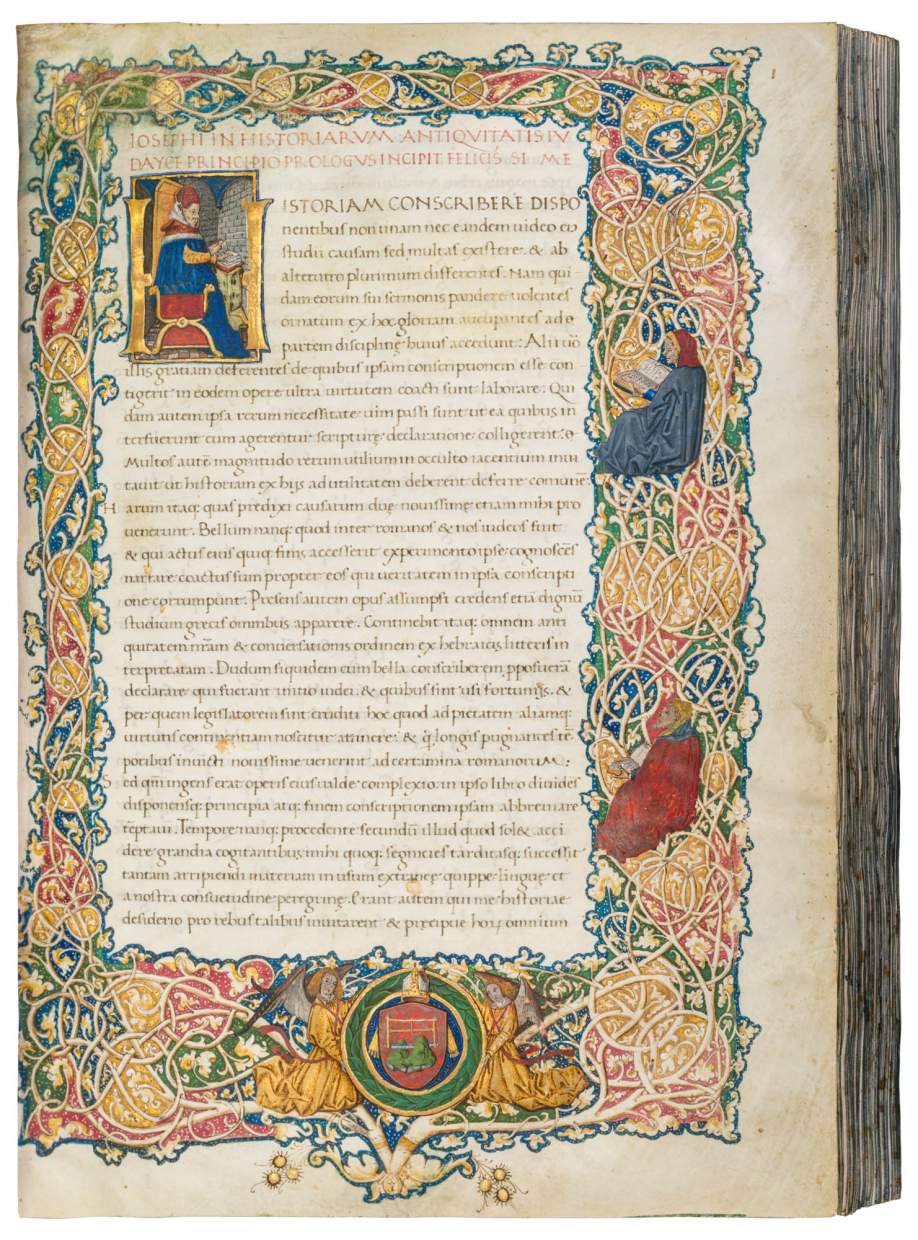 IOSEPHI IN HISTORIARVM ANTIQVITATIS IV
DAYCE PRINCIPIO PROLOGVS INCIPIT FELICIS SI ME
ISTORIAM CONSCRIBERE DISPO
nentibus non unam nec eandem uideo eiꝰ
studii causam sed multas existere. & ab
alterutro plurimum differentes. Nam qui
dam eorum sui sermonis pandere uolentes
ornatum ex hoc gloriam aucupantes ad
partem discipline huius accedunt. Alii uō
illis gratiam deferentes de quibus ipsam conscriptionem esse con
tigerit in eodem opere ultra uirtutem coacti sunt laborare. Qui
dam autem ipsa rerum necessitate uim passi sunt ut ea quibus in
terfuerunt cum agerentur scripturę declaratione colligerent.
Multos autē magnitudo rerum utilium in occulto iacentium inui
tauit ut historiam ex hijs ad utilitatem deberent deferre comunē
H arum itaq; quas predixi causarum duę nouissime etiam mihi pro
uenerunt. Bellum nanq; quod inter romanos & nos iudeos fuit
& qui actus eius quiq; finis accesserit experimento ipse cognoscēs
narrare coactus sum propter eos qui ueritatem in ipsa conscripti
one corrumpunt. Presens autem opus assumpsi credens etiā dignū
studium grecis omnibus apparere. Continebit itaq; omnem anti
quitatem nrām & conuersationis ordinem ex hebraicis litteris in
terpretatam. Dudum siquidem cum bella conscriberem pposuerā
declarare qui fuerant initio iudei. & quibus sint usi fortunijs. &
per quem legislatorem sint eruditi hoc quod ad pietatem aliamq;
uirtutis continentiam noscitur attinere. & q longis pugnantes tē
poribus inuicti nouissime uenerint ad certamina romanoruM;
S ed qm̄ ingens erat operis eius ualde complexio. in ipso libro diuides
disponensq; principia atq; finem conscriptionem ipsam abbreuiare
tēptaui. Tempore nanq; procedente secundū illud quod sol& acci
dere grandia cogitantibus mihi quoq; segnicies tarditasq; successit
tantam arripiendi materiam in usum extraneę quippe linguę et
a nostra consuetudine peregrinę. Erant autem qui me historiae
desiderio pro rebus talibus inuitarent & pręcipue hoꝝ omnium